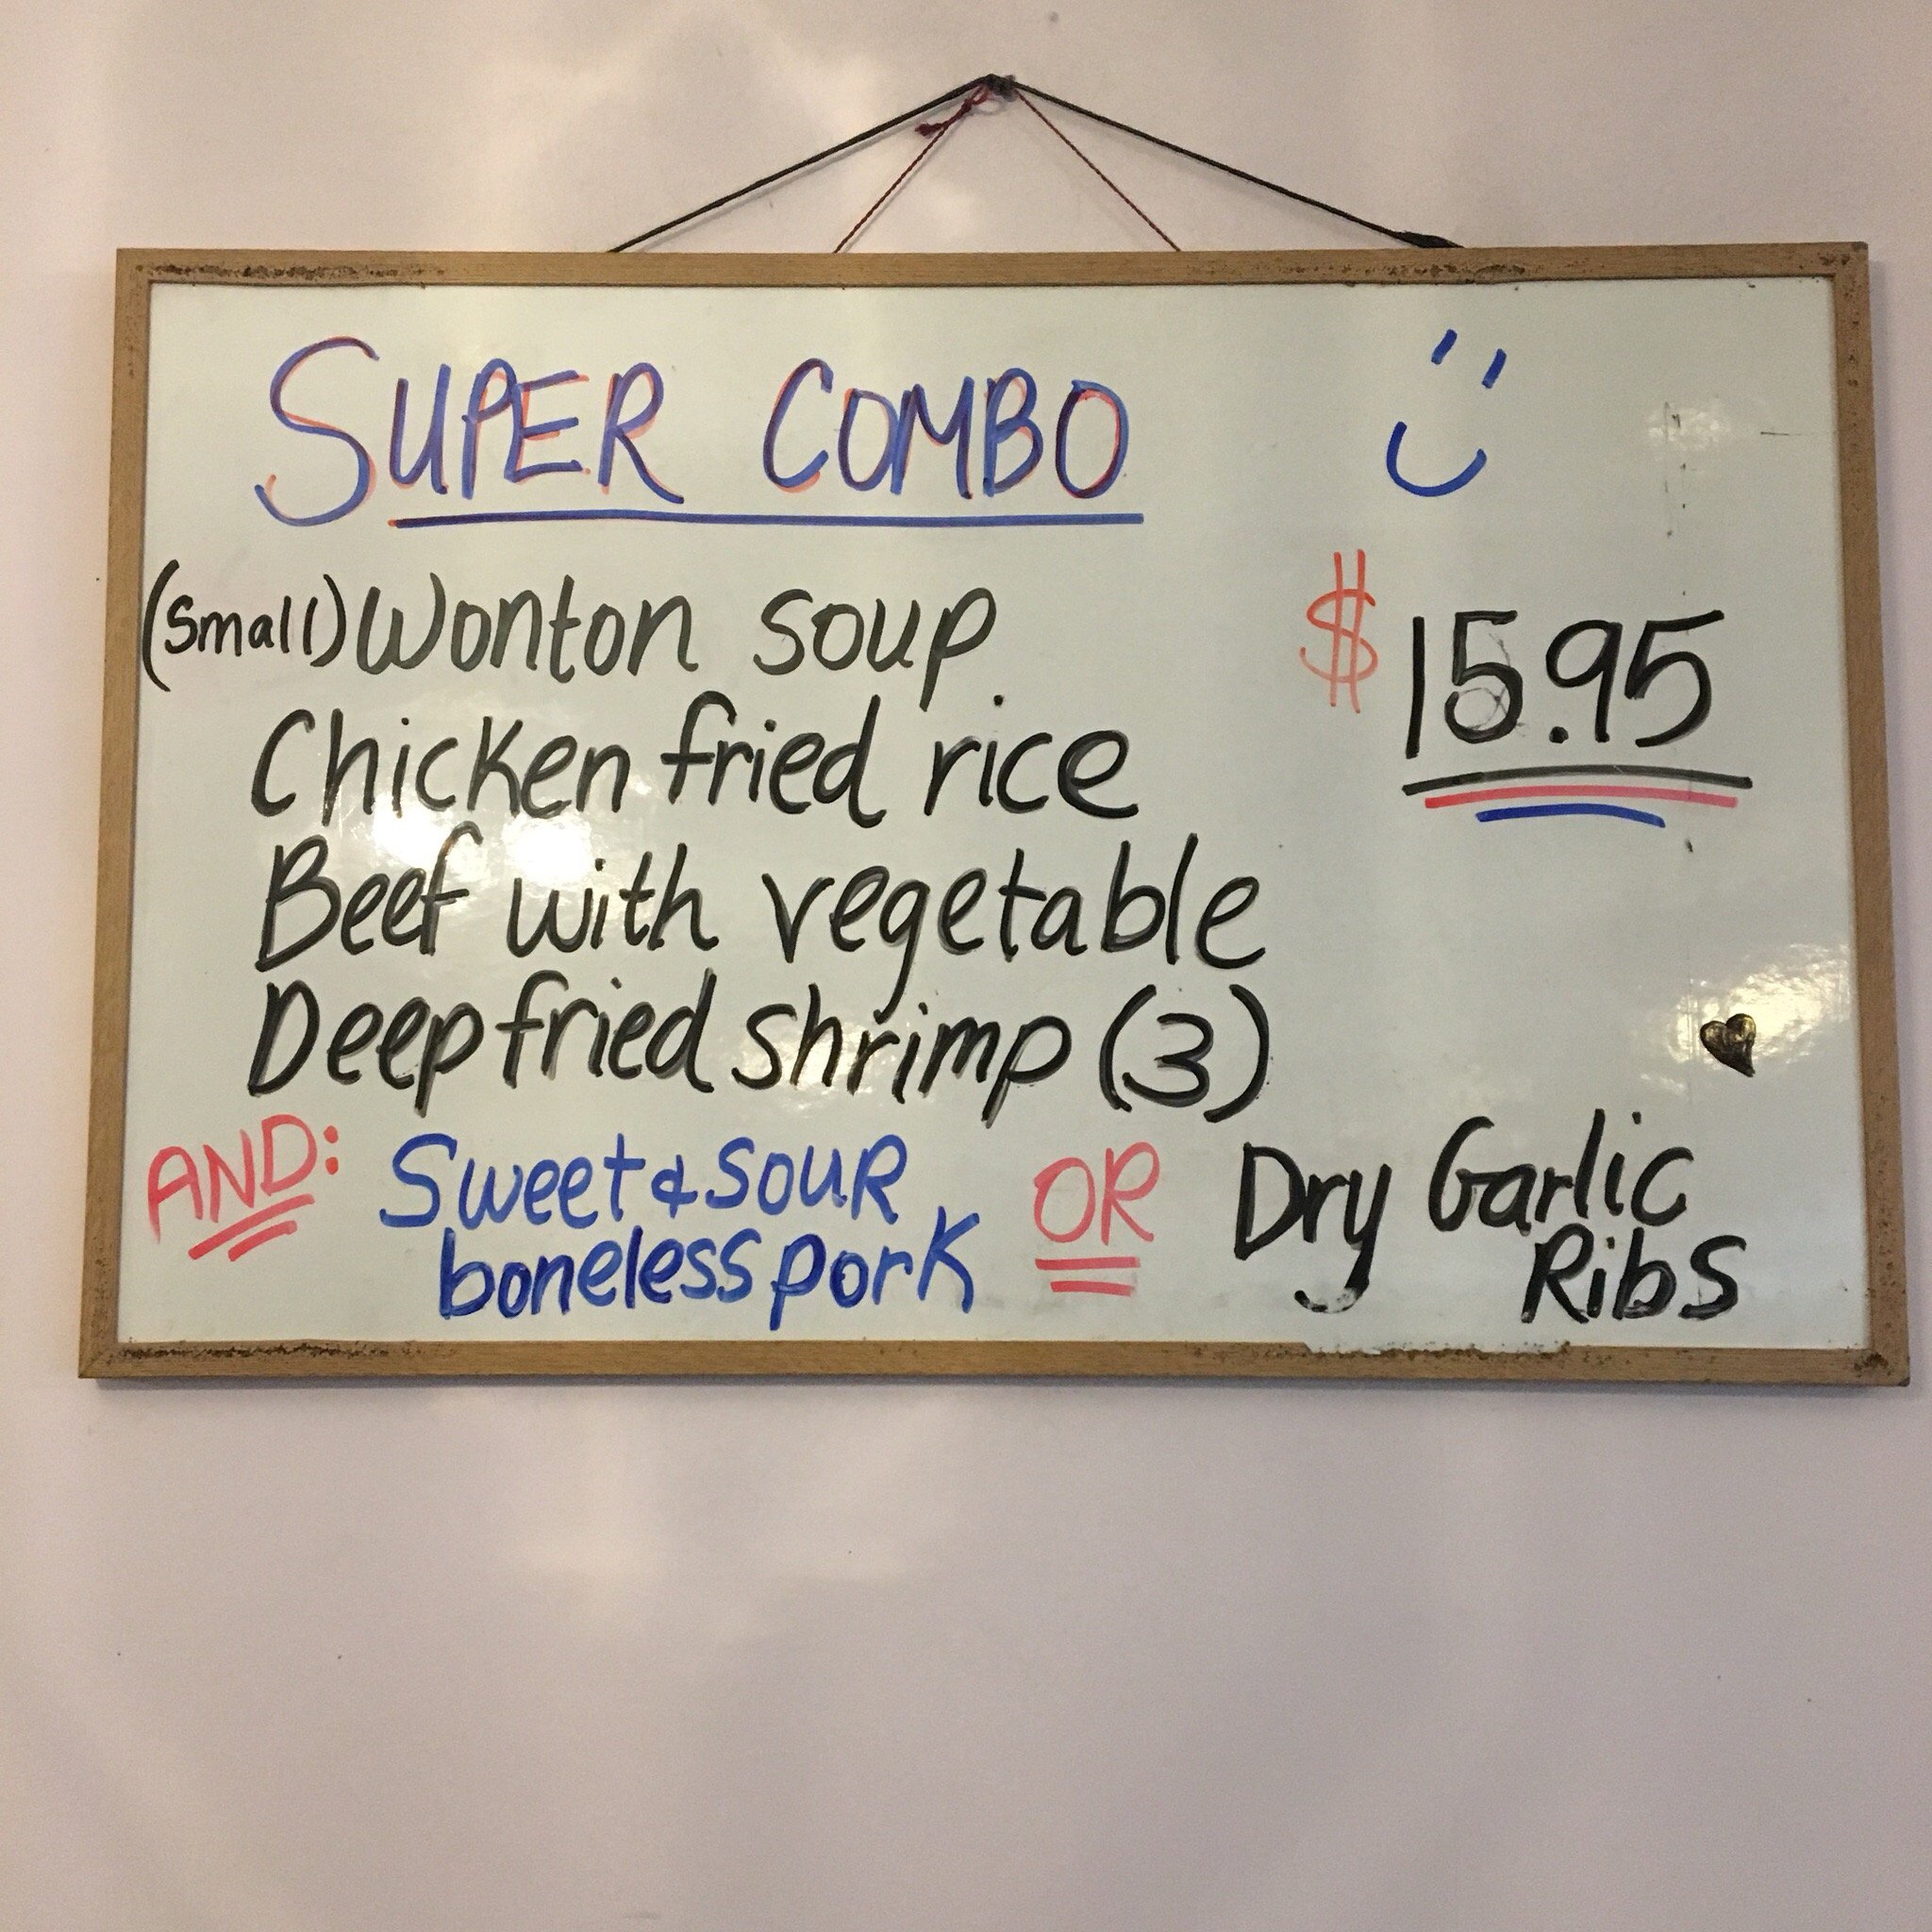 SUPER COMBO
(Small) Wonton soup
$ 15.95
Chicken fried rice
Beef with vegetable
Deep fried shrimp (3)
AND: Sweet & SOUR OR Dry Garlic
boneless pork Ribs